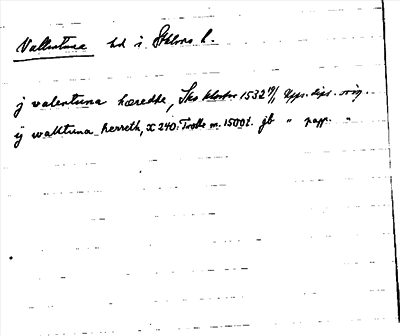 Vallentuna hd i Sthlms l.
j valentuna hæredhe, Sko kloster 1532 Upps. dipl. orig.
ij walltuna herreth, X 240: Trolle m. 1500 t. jb " papp. "